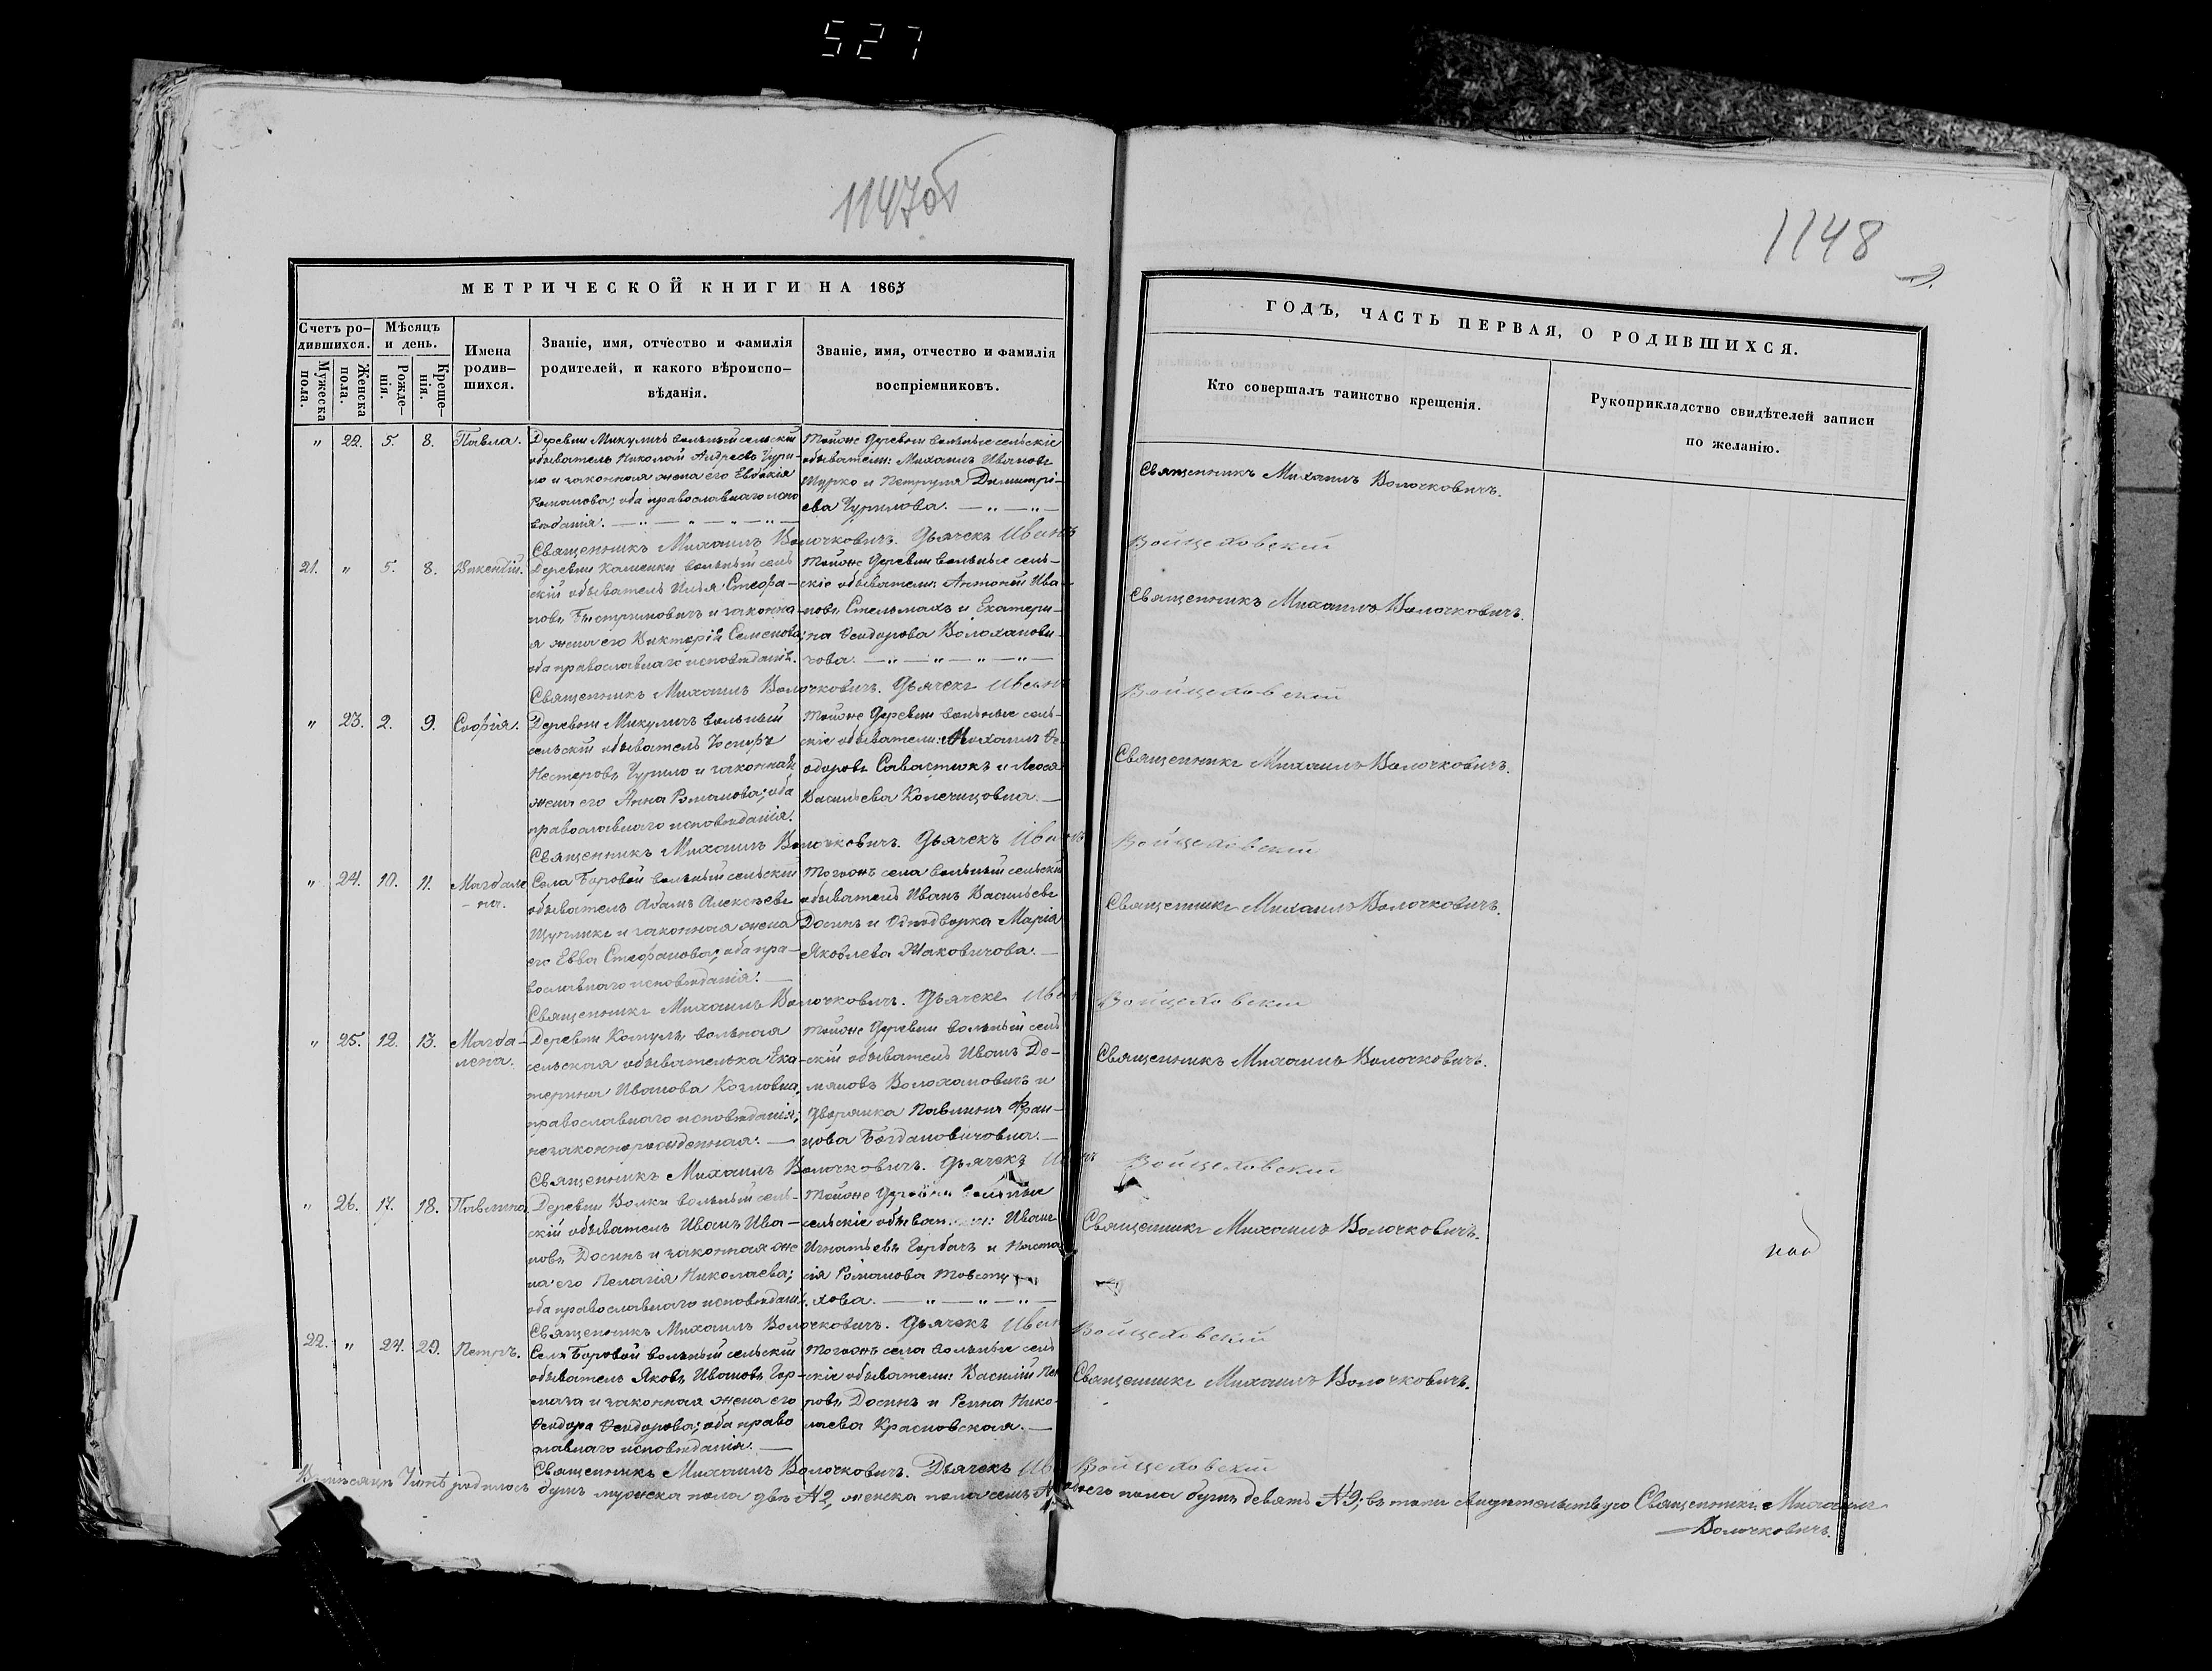 527
1147об
1148
МЕТРИЧЕСКОЙ КНИГИ НА 1863
ГОДЪ, ЧАСТЬ ПЕРВАЯ, О РОДИВШИХСЯ.
Счетъ ро-
дившихся.
Мужеска
пола.
Женска
пола.
Мѣсяцъ
и день.
Рожде-
нія.
Креще-
нія.
Имена
родив-
шихся.
Званіе, имя, отчество и фамилія
родителей, и какого вѣроиспо-
вѣданія.
Званіе, имя, отчество и фамилія
воспріемниковъ.
Кто совершалъ таинство крещенія.
Рукоприкладство свидѣтелей записи
по желанію.
" 22. 5. 8. Павла.
Деревни Микуличъ вольный сельскій
обыватель Николай Андреевъ Чури-
ло и законная жена его Евдокія
Романова; оба православнаго испо
вѣданія. — " — " — " — " —
Тойже деревни вольные сельскіе
обыватели: Михаилъ Ивановъ
Шурко и Петруня Димитрі-
ева Чурилова. — " — " —
Священникъ Михаилъ Волочковичъ.
Священникъ Михаилъ Волочковичъ. Дьячекъ Иванъ Войцеховскій
21. " 5. 8. Викендій.
Деревни Каменки вольный сель
скій обыватель Илья Стефа-
новъ Быстримовичъ и законна-
я жена его Викторія Семенова;
оба православнаго исповѣданія.
Тойже деревни вольные сель-
скіе обыватели: Антоній Ива-
новъ Стельмахъ и Екатери-
на Ѳеодорова Волохонови-
чова. — " — " — " — " —
Священникъ Михаилъ Волочковичъ.
Священникъ Михаилъ Волочковичъ. Дьячекъ Иванъ Войцеховскій
" 23. 2. 9. Софія.
Деревни Микуличъ вольный
сельскій обыватель Іосифъ
Нестеровъ Чурило и законная
жена его Анна Романова; оба
православнаго исповѣданія.
Тойже деревни вольные сель-
скіе обыватели: Михаилъ Ѳе-
одоровъ Савастюкъ и Леося
Васильева Конечицовна. —
Священникъ Михаилъ Волочковичъ.
Священникъ Михаилъ Волочковичъ. Дьячекъ Иванъ Войцеховскій
" 24. 10. 11. Магдале
-на.
Села Боровой вольный сельскій
обыватель Адамъ Алексѣевъ
Щупликъ и законная жена
его Евва Стефанова; оба пра-
вославнаго исповѣданія. —
Тогожъ села вольный сельскій
обыватель Иванъ Васильевъ
Досинъ и Однодворка Марія
Яковлева Жаковичова. —
Священникъ Михаилъ Волочковичъ.
Священникъ Михаилъ Волочковичъ. Дьячекъ Иванъ Войцеховскій
" 25. 12. 13. Магда-
лена.
Деревни вольная
сельская обывателька Ека-
терина Иванова Козловна,
православнаго исповѣданія;
незаконнорожденная. —
Тойже деревни вольный сель
скій обыватель Иванъ Де-
мяновъ Волохановичъ и
дворянка Павлина Фран-
цова Богдановичовна. —
Священникъ Михаилъ Волочковичъ.
Священникъ Михаилъ Волочковичъ. Дьячекъ Иванъ Войцеховскій
" 26. 17. 18. Павлина
Деревни Волки вольный сель-
скій обыватель Иванъ Ива-
новъ Досинъ и законная же
на его Пелагія Николаева;
оба православнаго исповѣданія.
Тойже деревни вольные
сельскіе обыватели: Иванъ
Игнатьевъ Горбачъ и Наста
сія Романова
хова. — " — " — " —
Священникъ Михаилъ Волочковичъ.
Священникъ Михаилъ Волочковичъ. Дьячекъ Иванъ Войцеховскій
22. " 24. 29. Петръ.
Села Боровой вольный сельскій
обыватель Яковъ Ивановъ Гор-
мата и законная жена его
Ѳеодора Ѳеодорова; оба право
славнаго исповѣданія. —
Тогожъ села вольные сель
скіе обыватели: Василій Пет
ровъ Досинъ и Репна Нико-
лаева Красновская. —
Священникъ Михаилъ Волочковичъ.
Священникъ Михаилъ Волочковичъ. Дьячекъ Иванъ Войцеховскій
мѣсяцѣ Іюнѣ родилось душъ мужеска пола двѣ №2, женска пола семь обоего пола душъ девять №9; въ томъ свидѣтельствую Священникъ Михаилъ
Волочковичъ.